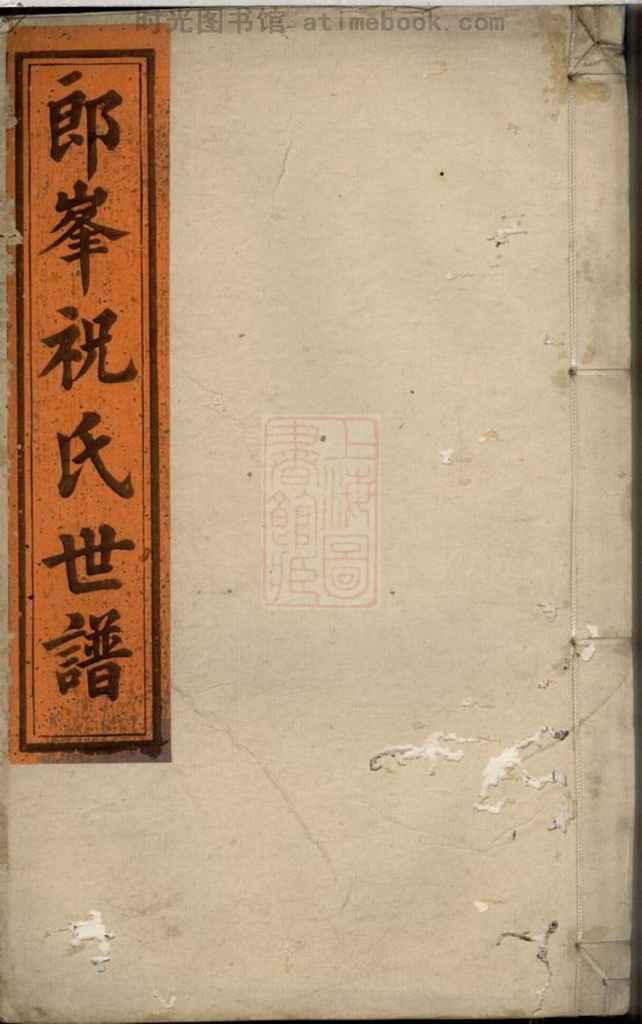 时光图书馆 - atimebook.com
郎峯祝氏世譜
上海圖
書館藏